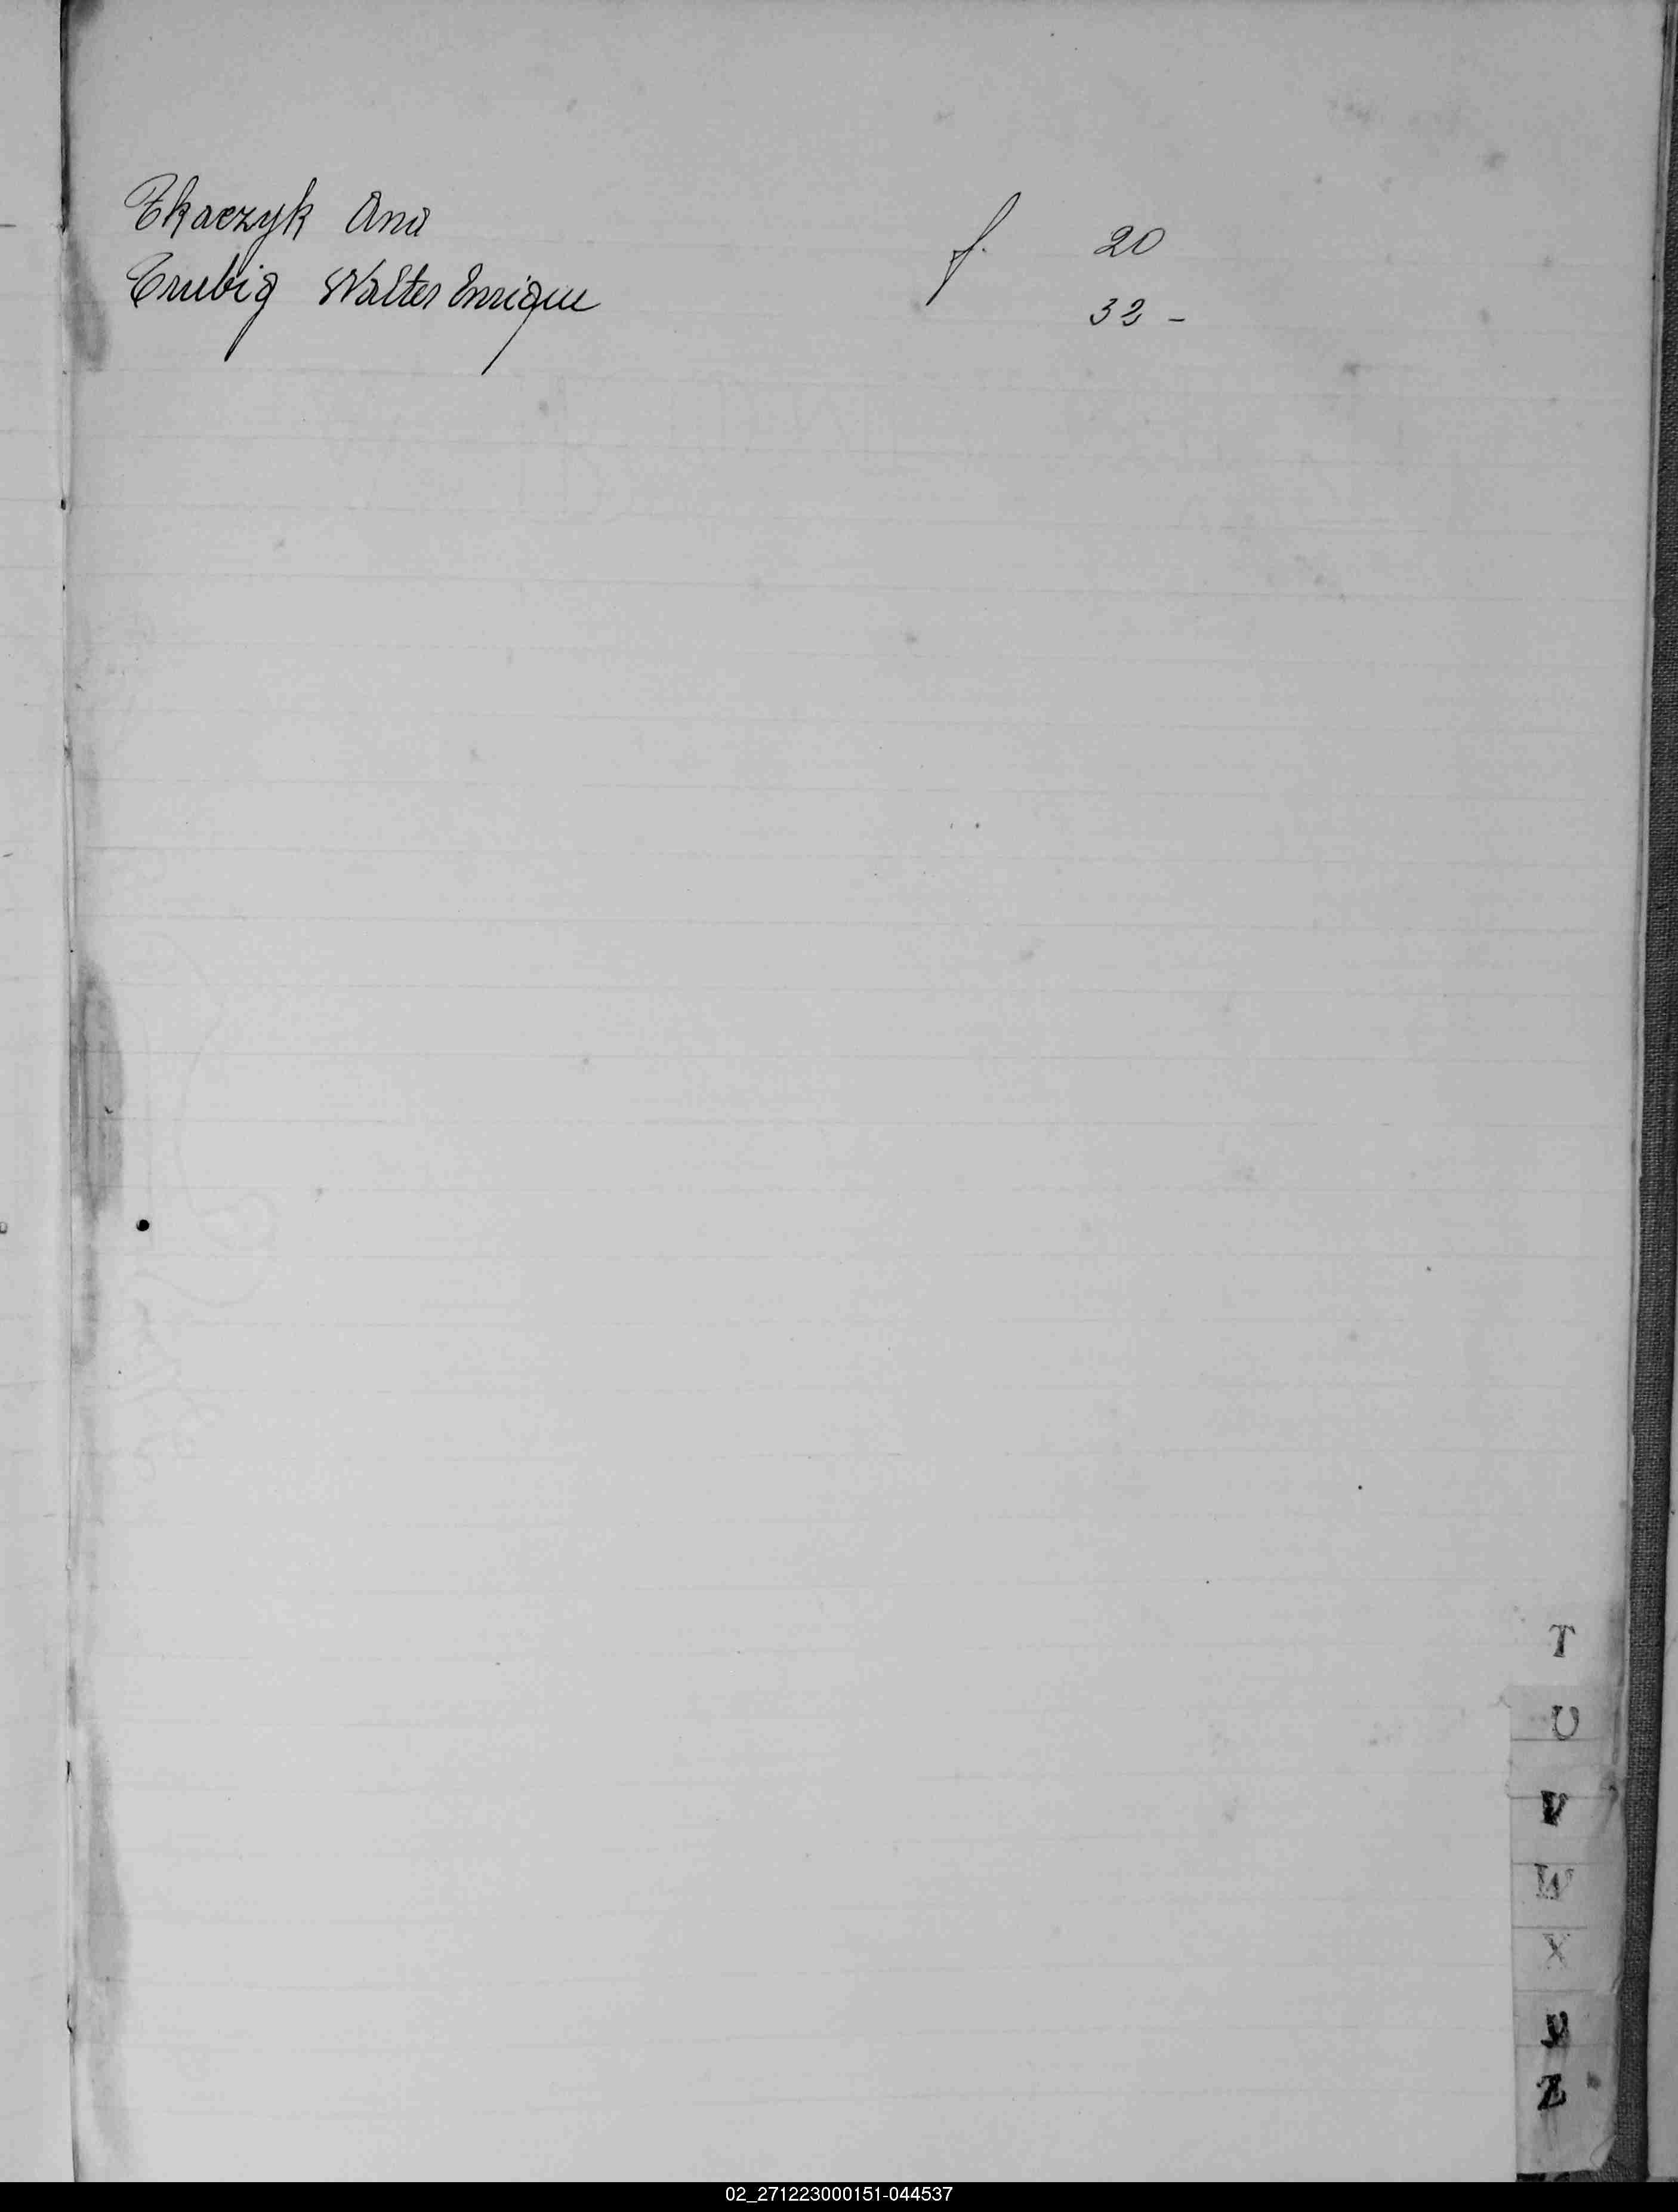 Tkaczyk Ana f. 20
Trubig Walter Enrique 32 -
T
U
V
W
X
Y
Z
02_271223000151-044537